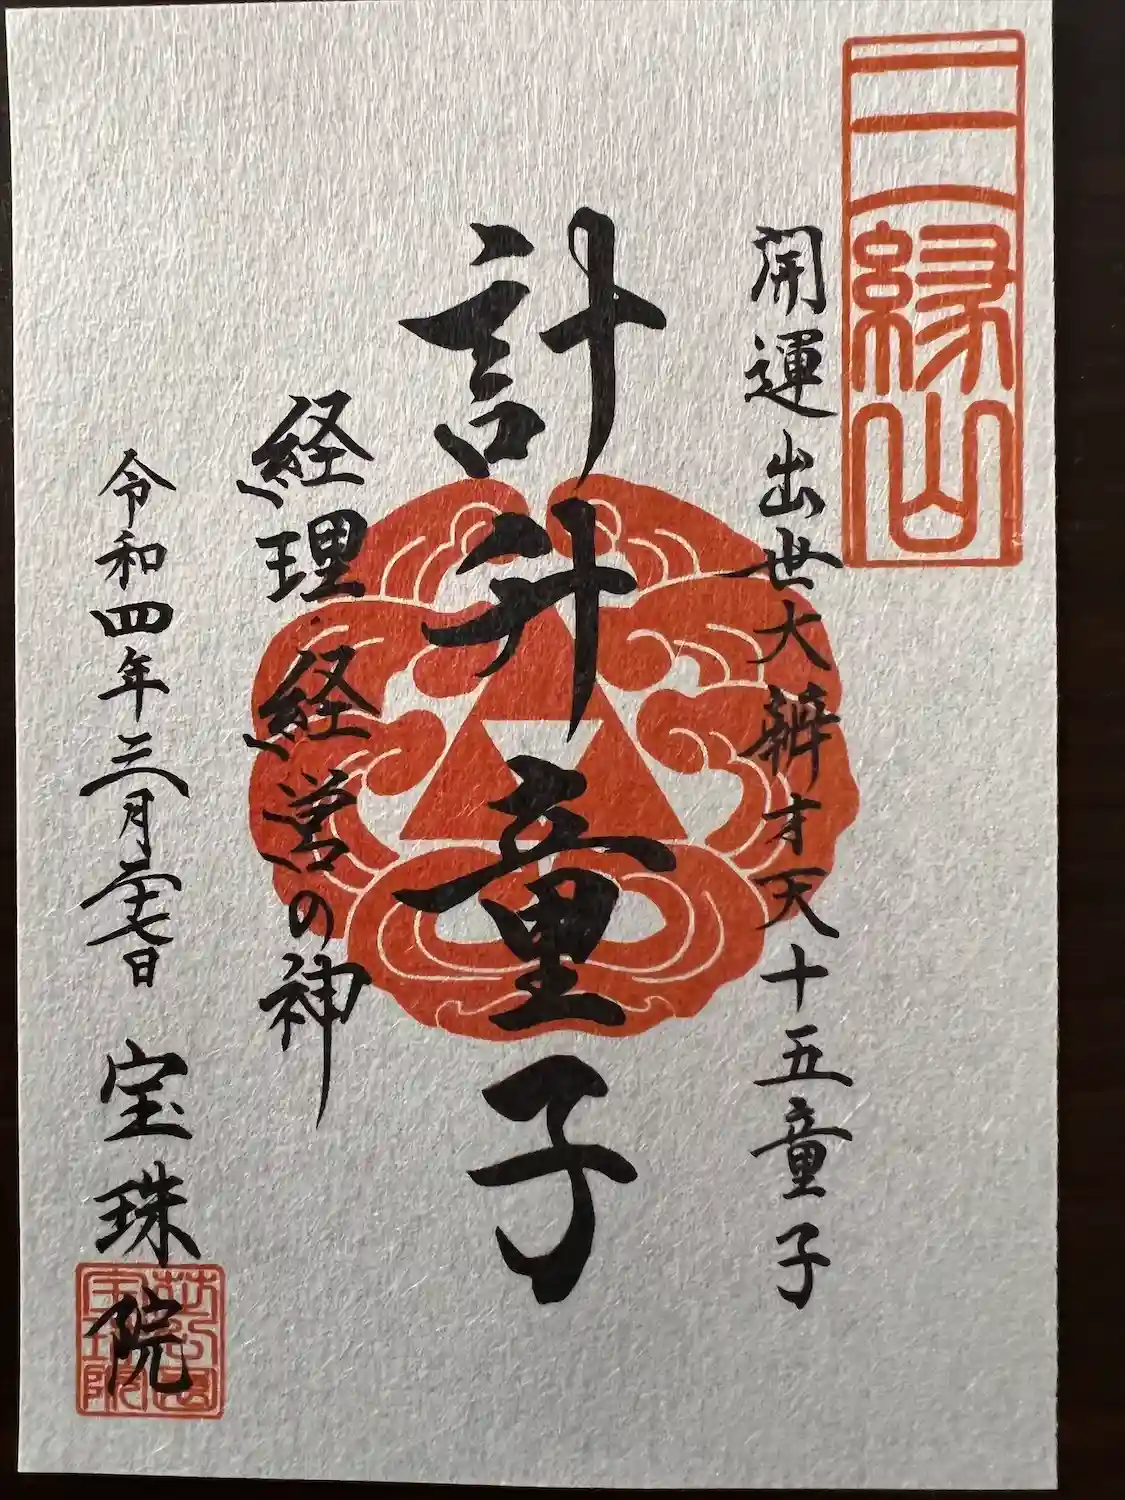 三縁山
開運出世大辨才天十五童子
計升童子
経理・経営の神
令和四年三月二十七日 宝珠院